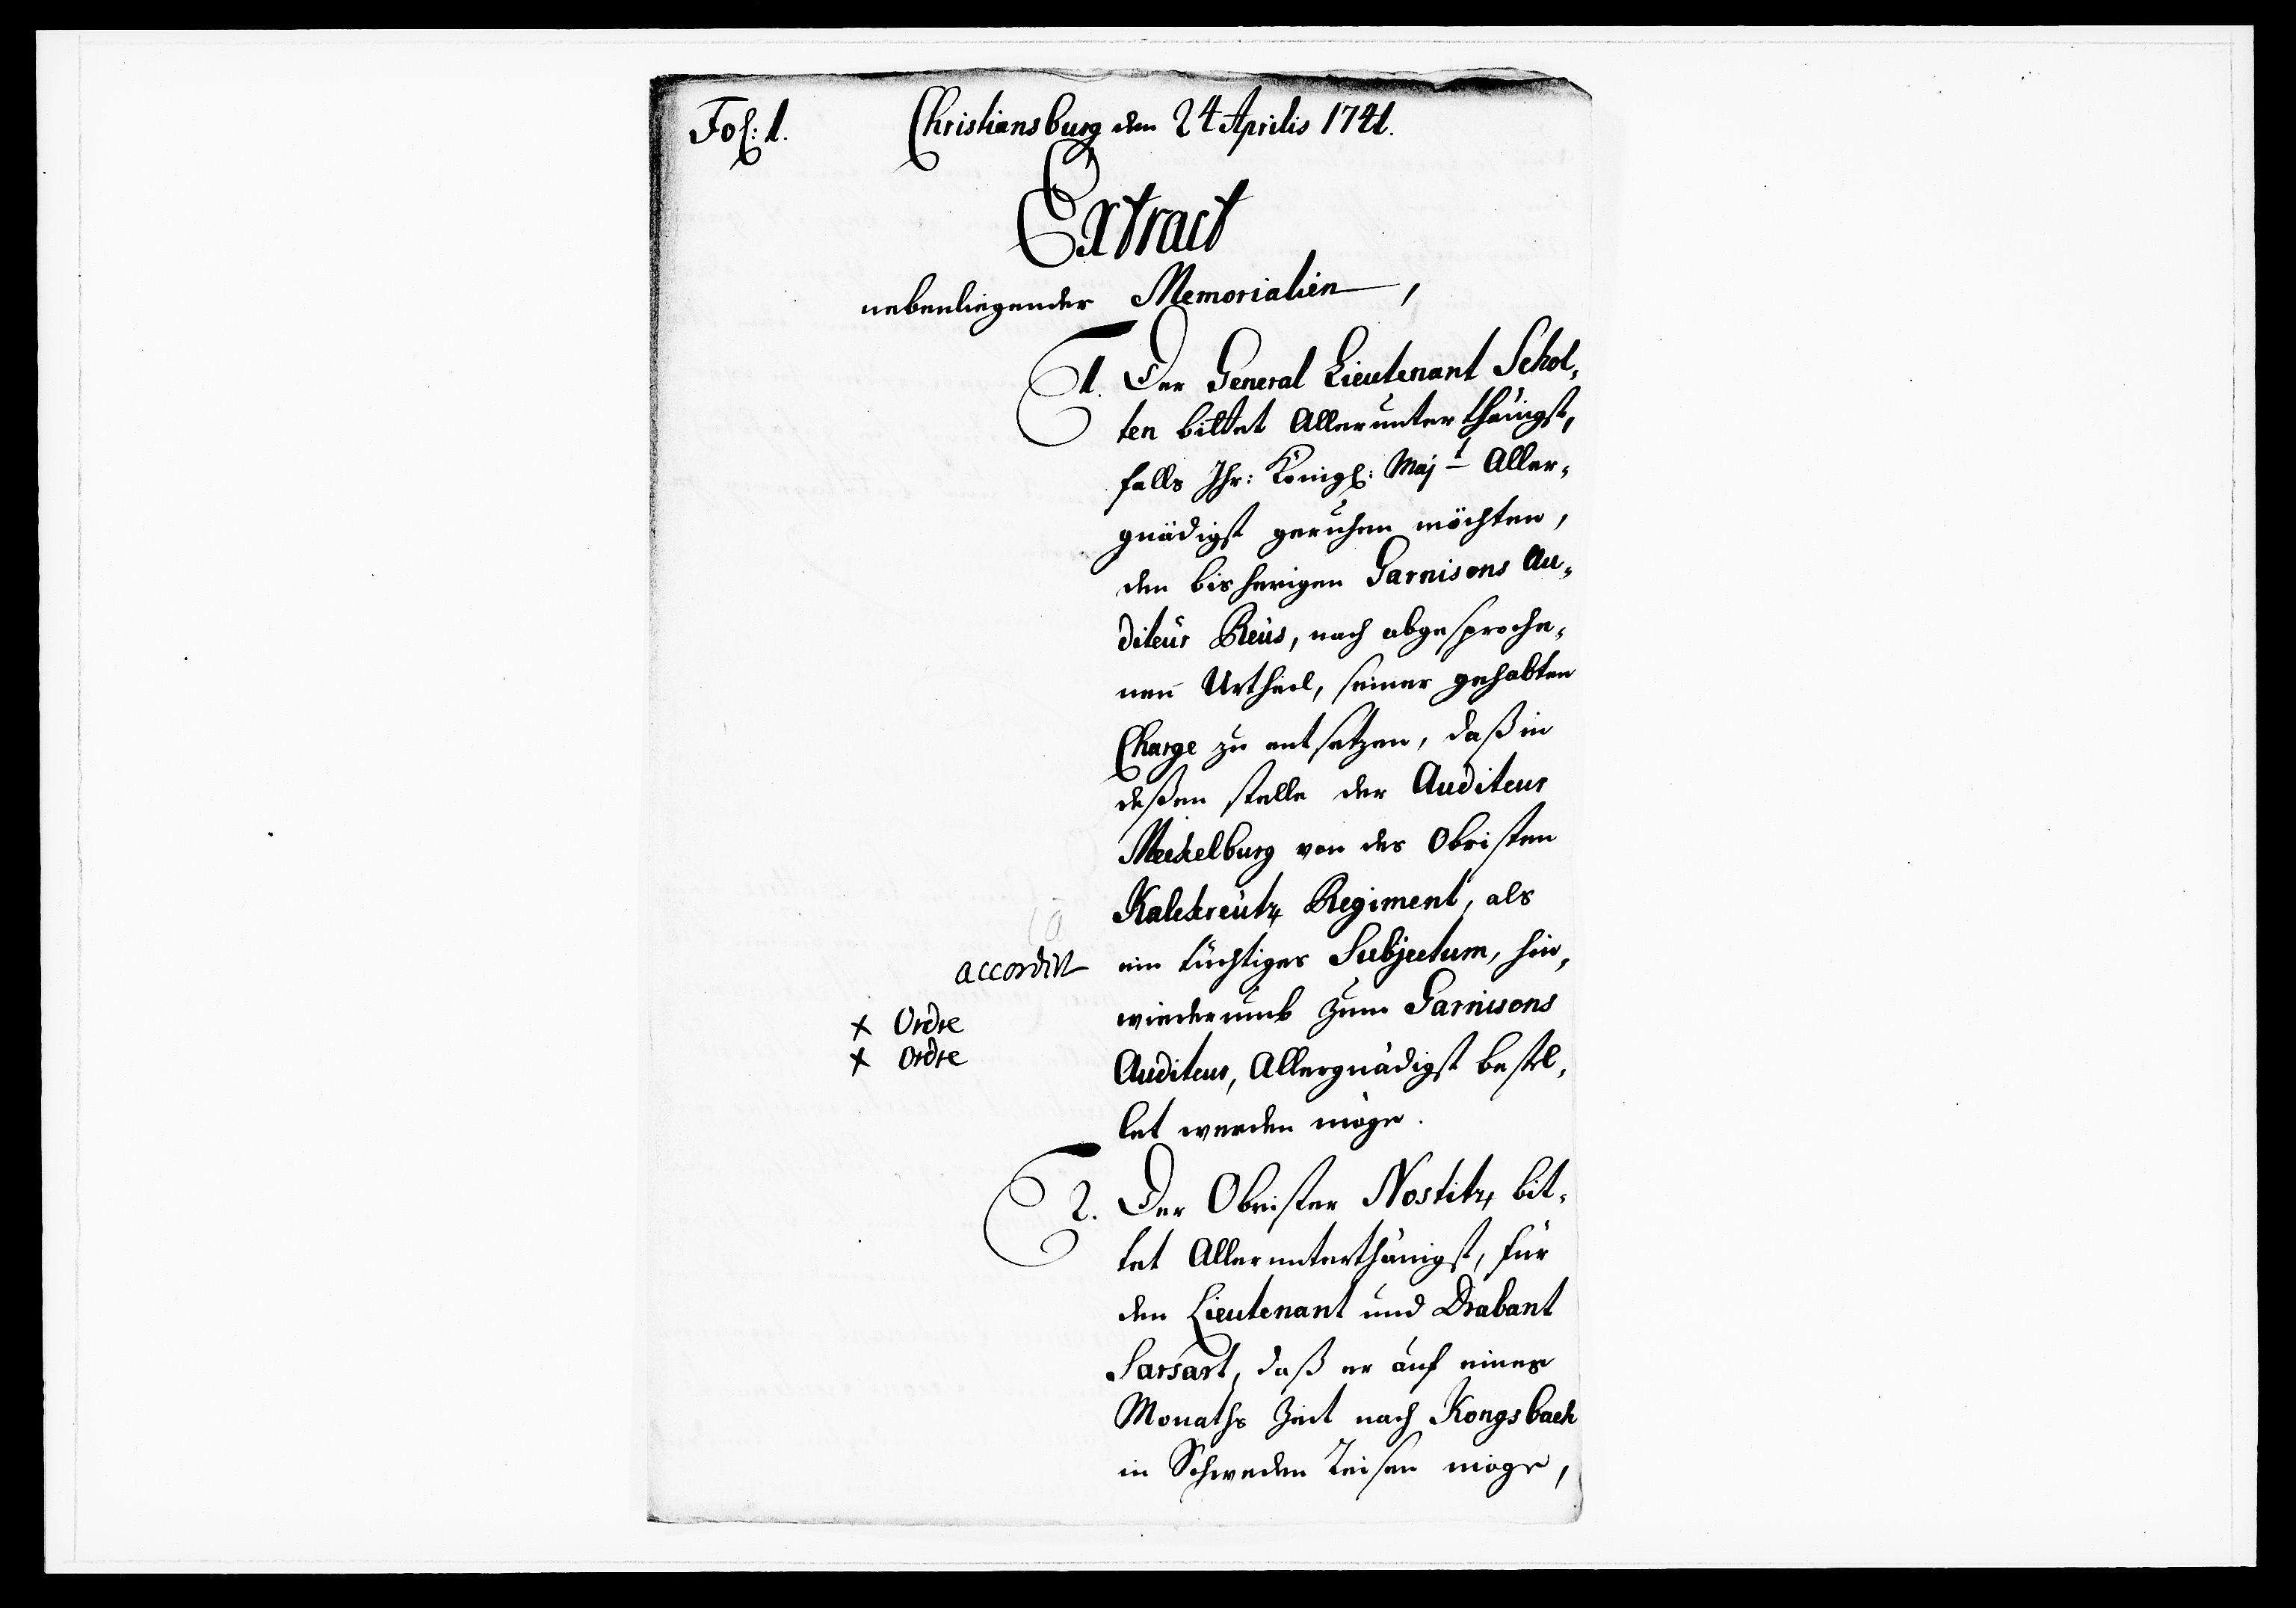 Fol: 1. Christiansburg den 24 Aprilis 1741.
Extract
nebenliegender Memorialien,
1. Der General Lieutenant Schol-
ten bittet Allerunterthänigst,
falls Ihr: Königl: Majt Aller-
gnädigst geruhen möchten,
den bisherigen Garnisons Au-
diteur Reus, nach abgesproche-
nen Urtheil, seiner gehabten
Charge zu entsetzen, daß in
deßen stelle der Auditeur
Meckelburg von des Obristen
Kalckreutz Regiment, als
accordirt ein tüchtiges Subjectum, hin-
× Ordre wiederumb zum Garnisons
× Ordre Auditeur, Allergnädigst bestel-
let werden möge.
2. Der Obrister Nostitz bit-
tet Allerunterthänigst, für
den Lieutenant und Drabant
Sarsart, daß er auf eines
Monaths Zeit nach Kongsback
in Schweden Reisen möge,